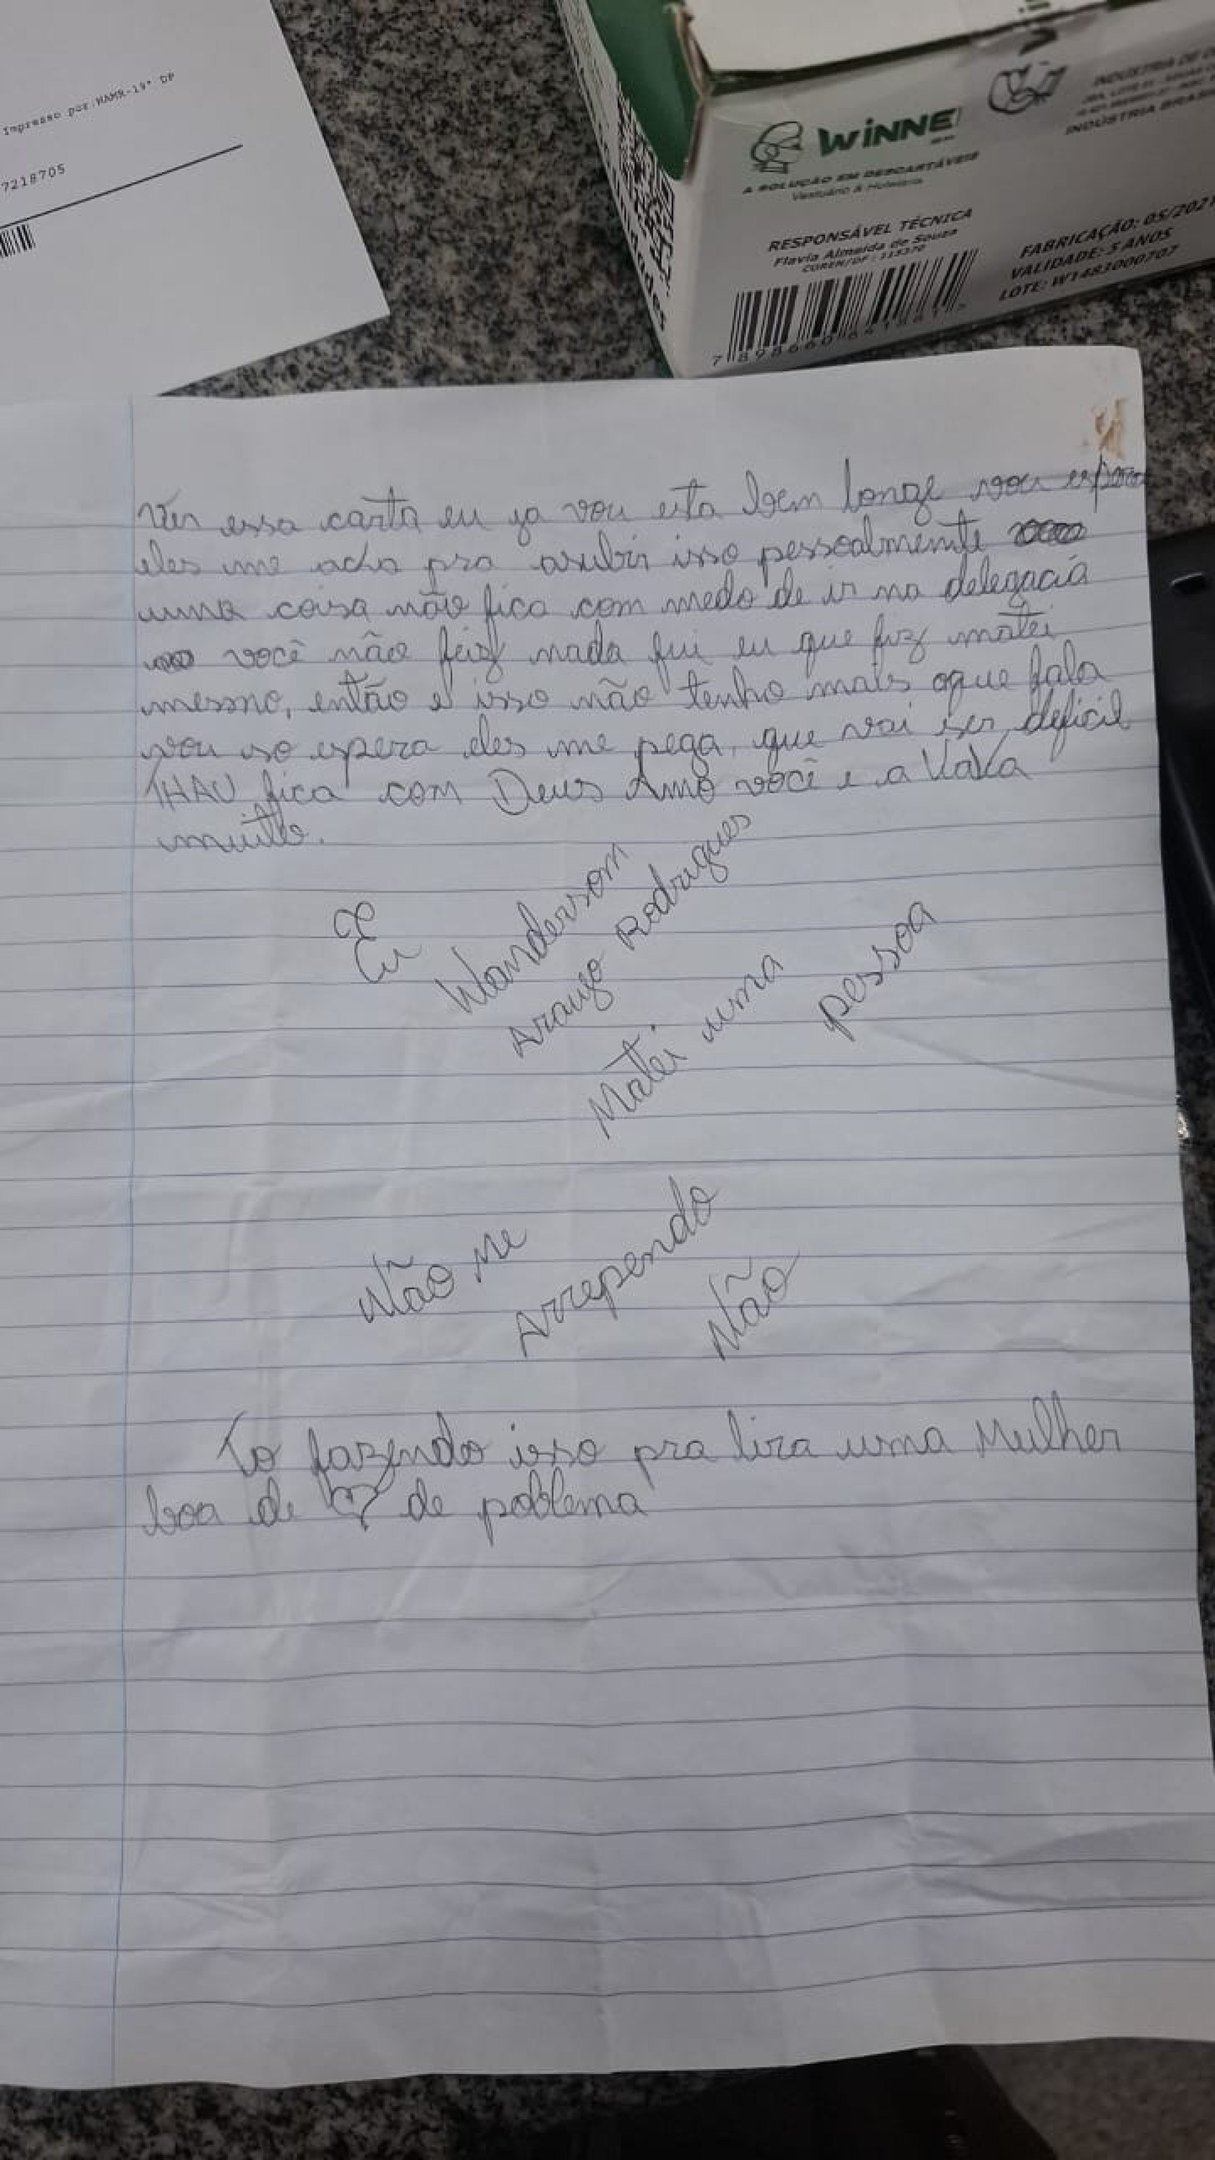 Impresso por: NAMR-19ª DP
7218705
WINNE
A SOLUÇÃO EM DESCARTÁVEIS
Vestuário & Hotelaria
RESPONSÁVEL TÉCNICA
Flavia Almeida de Souza
COREN/DF: 115370
INDÚSTRIA DE
INDÚSTRIA BRASI
FABRICAÇÃO: 05/2021
VALIDADE: 5 ANOS
LOTE: W1483000707
Ver essa carta eu ja vou esta bem longe vou espera
eles me acha pra asubir isso pessoalmente
uma coisa não fica com medo de ir na delegacia
você não feiz nada fui eu que fiz matei
mesmo, então e isso não tenho mais oque fala
vou so espera eles me pega, que vai ser deficil
THAU fica com Deus Amo você e a Kaka
muitto.
Eu
Wanderson
Araujo Rodrigues
Matei uma pessoa
Não me
Arrependo
Não
To fazendo isso pra tira uma Mulher
boa de de poblema